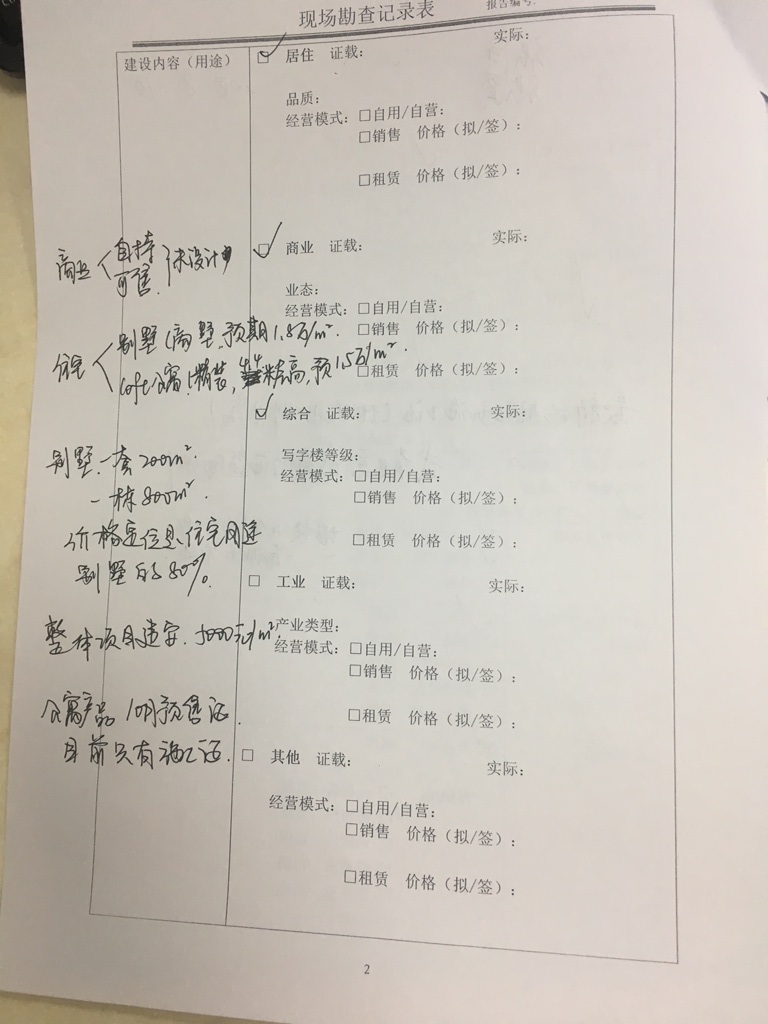 现场勘查记录表
报告编号:
建设内容（用途）
□ 居住 证载：
实际：
品质：
经营模式：□自用/自营：
□销售 价格（拟/签）：
□租赁 价格（拟/签）：
□ 商业 证载：
实际：
业态：
经营模式：□自用/自营：
□销售 价格（拟/签）：
□租赁 价格（拟/签）：
□ 综合 证载：
实际：
写字楼等级：
经营模式：□自用/自营：
□销售 价格（拟/签）：
□租赁 价格（拟/签）：
□ 工业 证载：
实际：
产业类型：
经营模式：□自用/自营：
□销售 价格（拟/签）：
□租赁 价格（拟/签）：
□ 其他 证载：
实际：
经营模式：□自用/自营：
□销售 价格（拟/签）：
□租赁 价格（拟/签）：
商业
自持
可售
未设计
住宅
别墅 预期1.8万/m².
loft公寓 精装, 4.4 高, 预1.5万/m².
别墅.一套200m².
一栋800m².
价格定位是住宅用途
别墅的80%.
整体项目建安. 5000元/m²
公寓产品 10月预售证.
目前只有施工证.
2